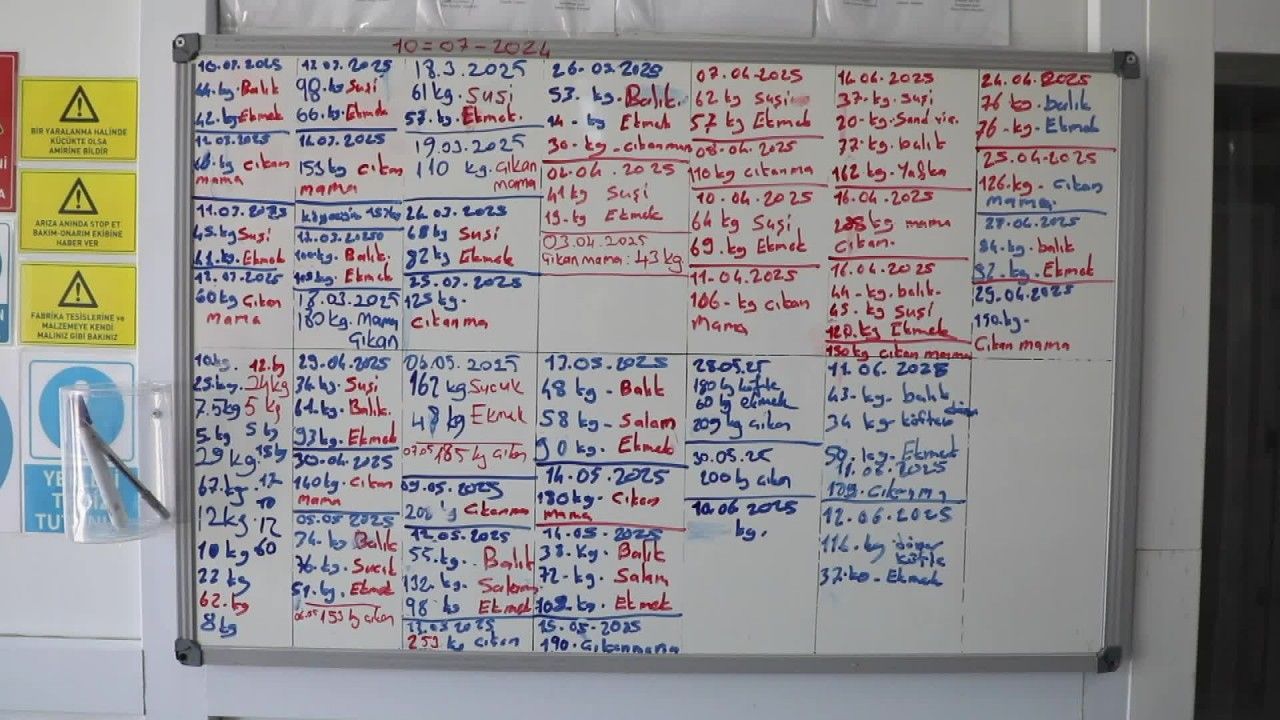 BİR YARALANMA HALİNDE
KÜÇÜKTE OLSA
AMİRİNE BİLDİR
ARIZA ANINDA STOP ET
BAKIM-ONARIM EKİBİNE
HABER VER
FABRİKA TESİSLERİNE ve
MALZEMEYE KENDİ
MALINIZ GİBİ BAKINIZ
10=07-2024
10.03.2025
44.kg. Balık
42.kg Ekmek
12.03.2025
kg Cıkan
mama
11.03.2025
45.kg Suşi
61.kg. Ekmek
12.03.2025
60 kg Cıkan
Mama
13.03.2025
98.kg Suşi
66.kg. Ekmek
14.03.2025
153 kg Cıkan
mama
100.kg. Balık.
kg. Ekmek
18.03.2025
180 kg. Mama
Gıkan
18.3.2025
61 kg. Suşi
57. kg. Ekmek.
19.03.2025
110 kg. Gıkan
mama
24.03.2025
68 kg Suşi
82 kg Ekmek
25.03.2025
125 kg.
Cıkanma
26.03.2025
53. kg. Balık.
14- kg Ekmek
30- kg - Cıkanmam
02.04.2025
41 kg Suşi
19- kg Ekmek
03.04.2025
Gıkan mama: 43 kg
07.04.2025
62 kg Suşi
57 kg Ekmek
08.04.2025
110 kg cıkanma
10.04.2025
64 kg Suşi
69. kg Ekmek
11-04.2025
106-kg cıkan
Mama
14 04.2025
37-kg. Suşi
20-kg. Sand vic.
77-kg. balık
162 kg. Yafka
16.04.2025
kg mama
Cıkan.
16.04.2025
44-kg. balık.
45. kg Suşi
120.kg Ekmek
150 kg cıkan mama
24.04.2025
76 kg. balık
76-kg. Ekmek
25.04.2025
126.kg- Cıkan
Mama.
28.04.2025
84.kg. balık
82.kg. Ekmek
29.04.2025
150.kg-
Cıkan mama
10kg. 12.kg
25kg. 24kg
7.5kg 5 kg
5 kg 5 kg
29 kg. 15kg
67.kg. 12
12kg. 12
10 kg 60
22 kg
62.kg
8kg
29.04.2025
34.kg. Suşi
61.kg. Balık.
93kg. Ekmek
30.04.2025
140 kg. Cıkan
Mama
05.05.2025
74. kg Balık
36.kg. Sucuk
51.kg. Ekmek
06.05 153 kg cıkan
06.05.2025
162 kg Sucuk
48 kg Ekmek
07.05 185 kg cıkan
09.05.2025
Cıkanma
12.05.2025
55. kg. Balık
132. kg. Salam
98 kg Ekmek
13.05.2025
253 kg Cıkan
13.05.2025
48 kg - Balık
58 kg - Salam
90 kg. Ekmek
14.05.2025
180 kg. Cıkan
mama
14.05.2025
38. kg. Balık
72-kg. Salam
kg. Ekmek
15.05-2025
190.Gıkanmama
28.05.25
180 kg köfte
60 kg ekmek
209 kg Gıkan
30.05.25
200 kg cıkan
10.06 2025
kg.
11.06 2025
43-kg. balık
34 kg köfte
döner
50. kg. Ekmet
11.06.2025
129. cıkanma
12.06.2025
116. kg döner
köfte
37.kg - Ekmek